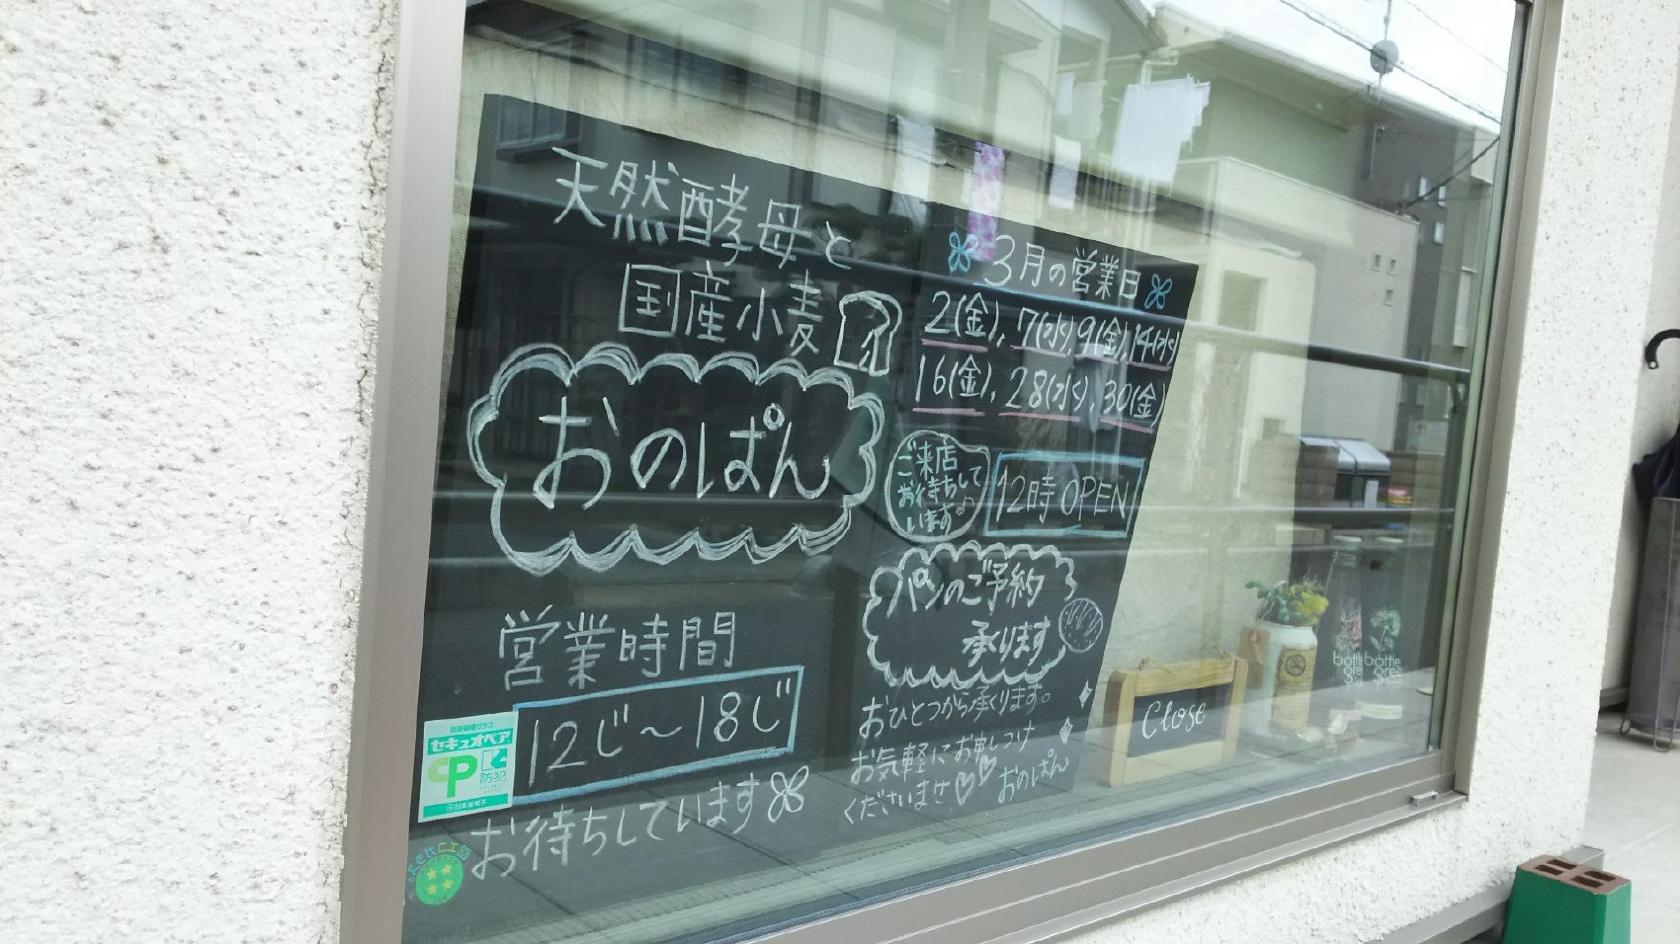 天然酵母と
国産小麦
おのぱん
営業時間
12じ〜18じ
お待ちしています
3月の営業日
2(金), 7(水), 9(金), 14(水)
16(金), 28(水), 30(金)
ご来店
お待ちして
います♪
12時 OPEN
パンのご予約
承ります
おひとつから承ります。
お気軽にお申しつけ
くださいませ♡♡ おのぱん
Close
セキュオペア
CP
防犯
bottle
bottle